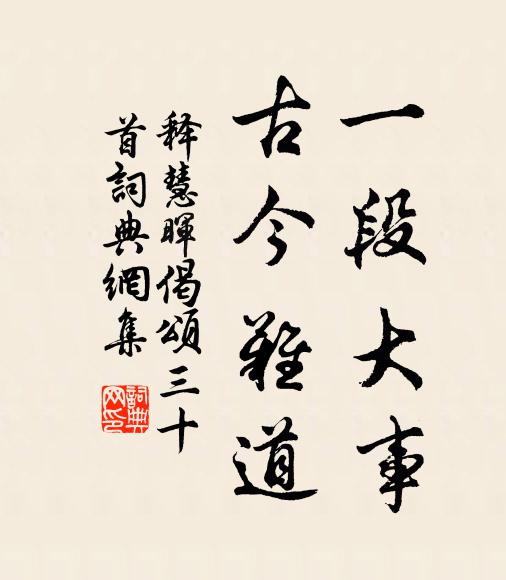 一段大事
古今難道
释慧暉偈頌三十
首詞典網集
詞典网印